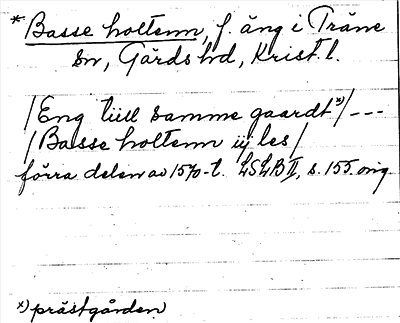 * Basse holtenn, f. äng i Träne
sn, Gärds hd, Krist. l.
/Eng till samme gaardt x)/ ---
/Basse holtenn iij les/
förra delen av 1570-t. LSLB II, s. 155. orig.
x) prästgården